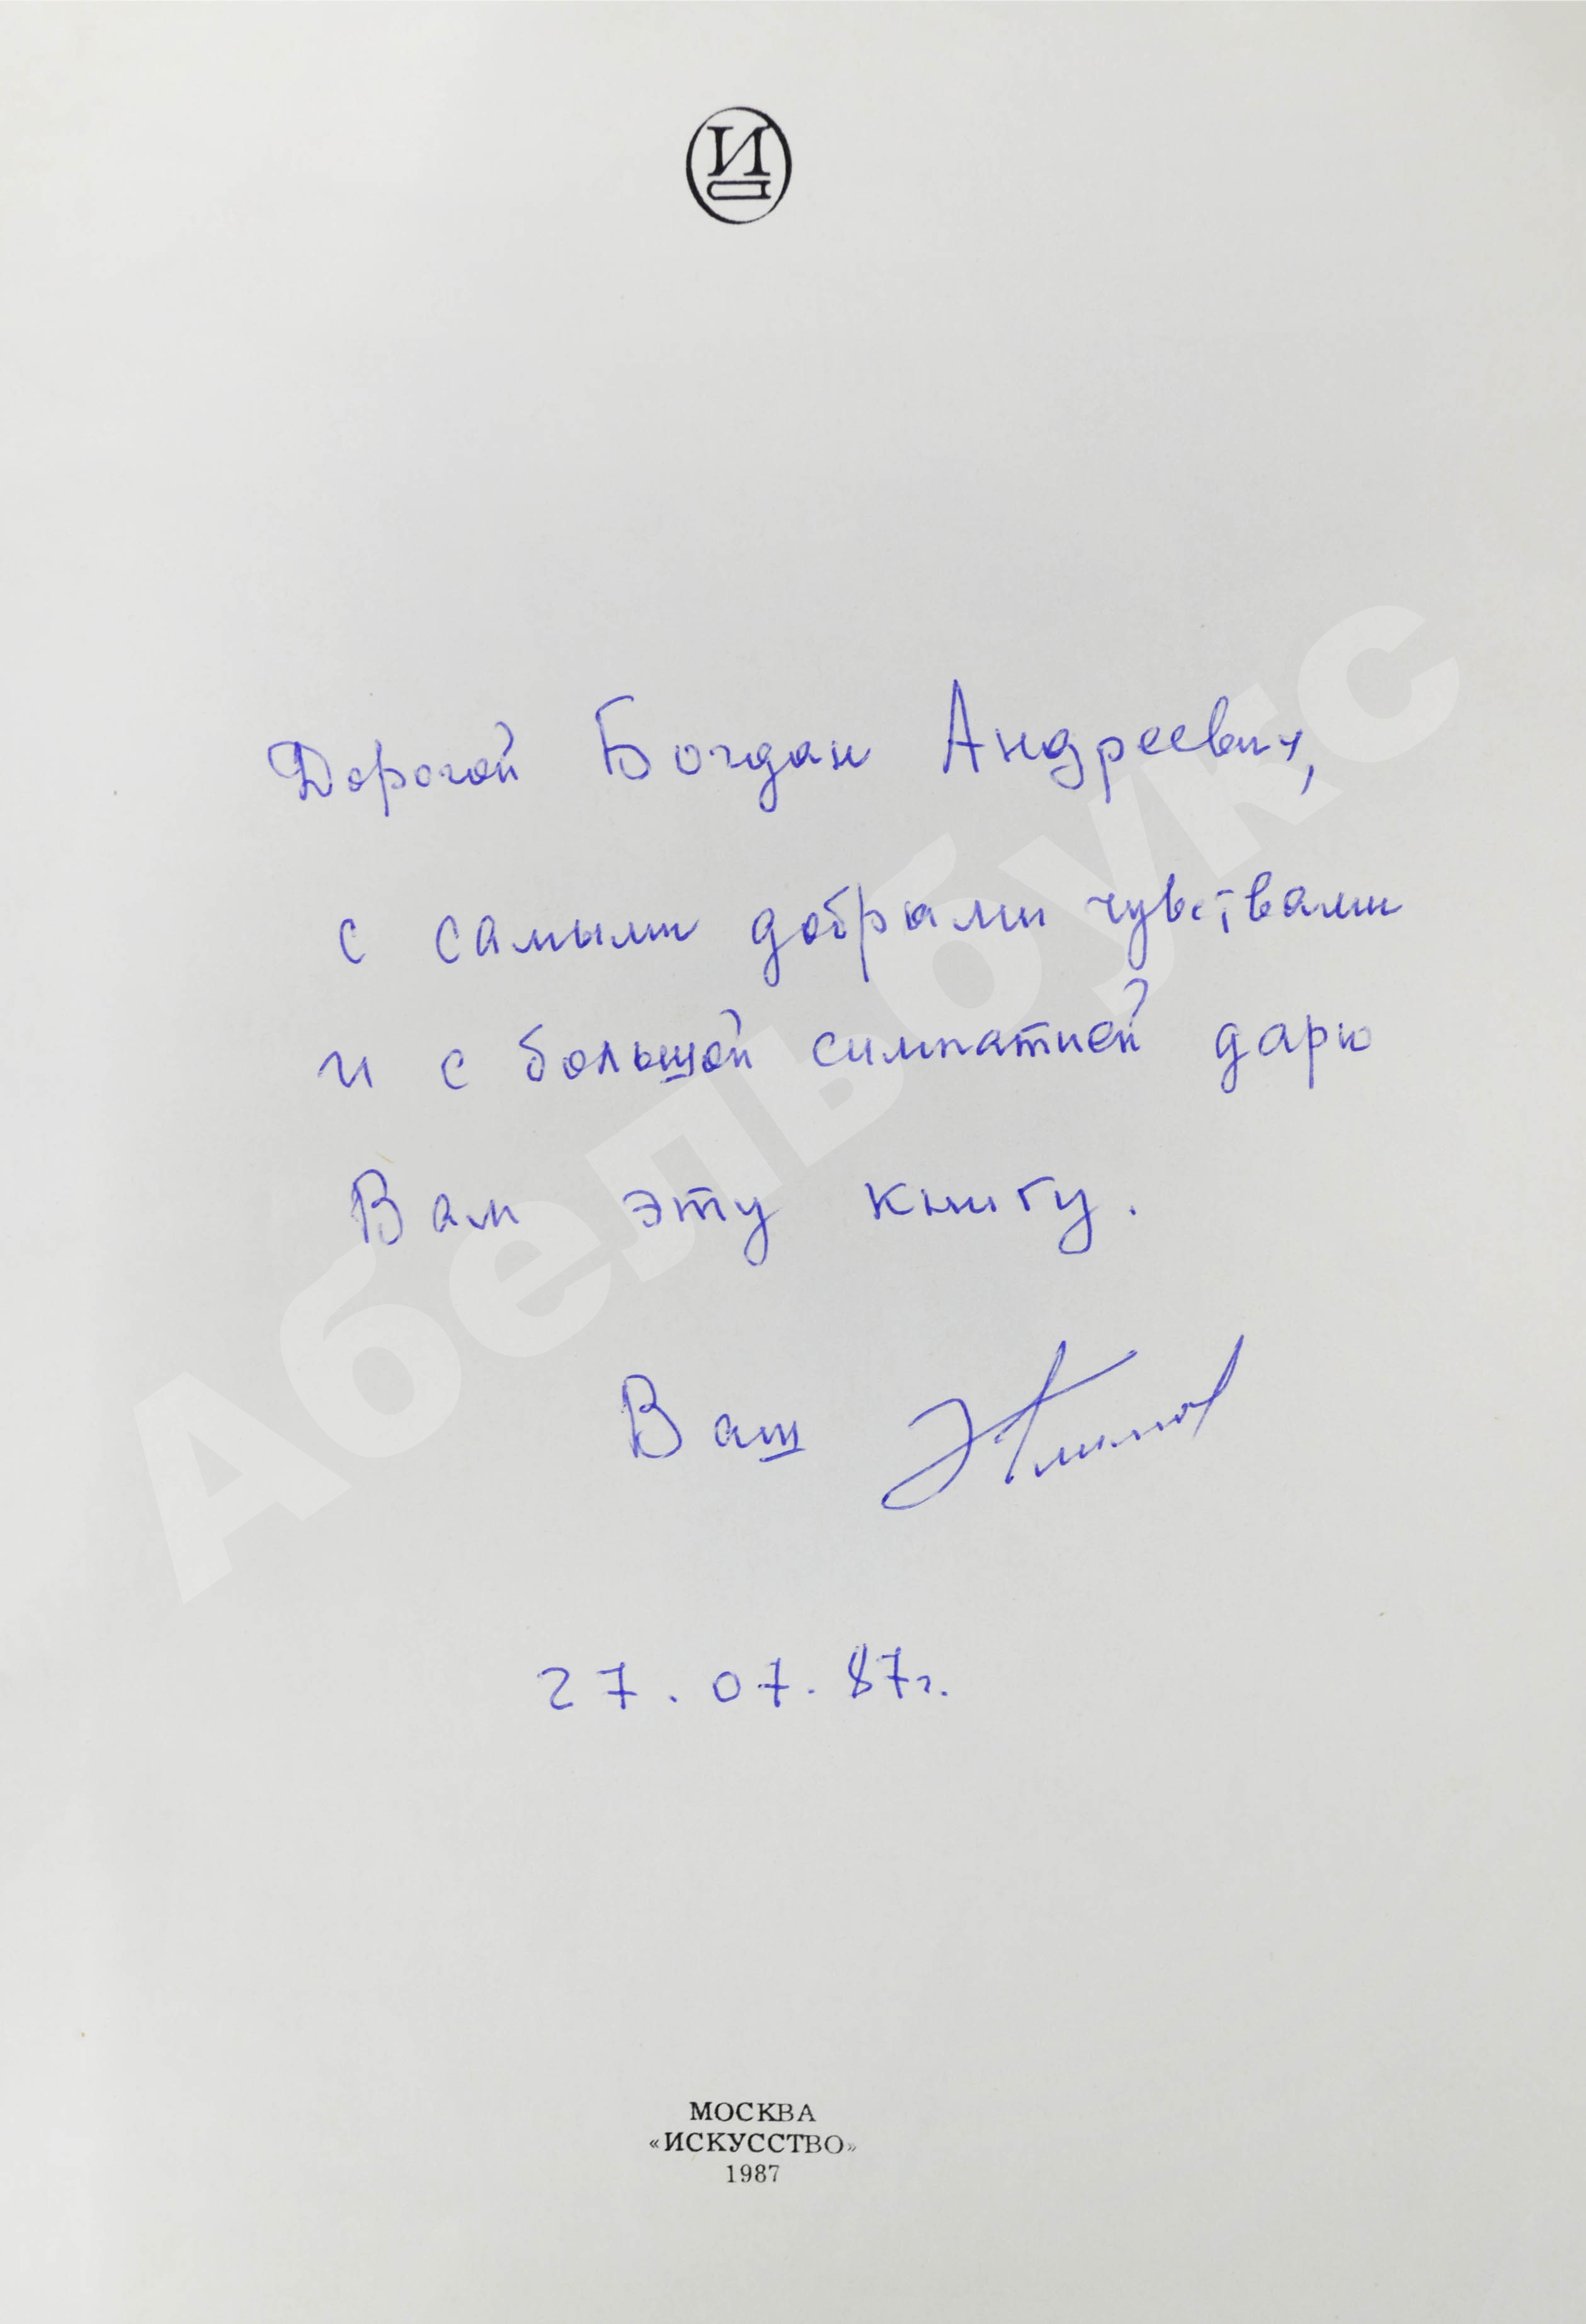 И
Дорогой Богдан Андреевич,
с самыми добрыми чувствами
и с большой симпатией дарю
Вам эту книгу.
Ваш
27.07.87г.
МОСКВА
«ИСКУССТВО»
1987
Абельбукс